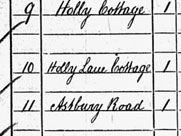 9 Holly Cottage 1
10 Holly Lane Cottage 1
11 Ashbury Road 1